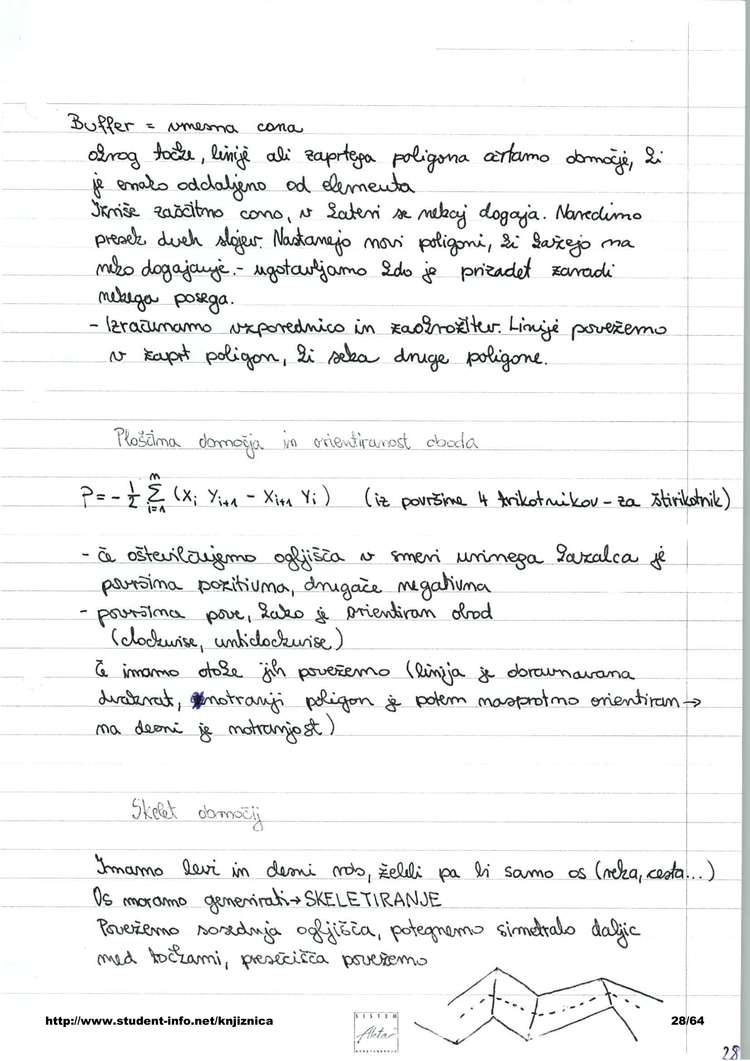 Buffer = vmesna cona
okrog točke, linije ali zaprtega poligona črtamo območje, ki
je enako oddaljeno od elementa
Izriše zaščitno cono, v kateri se nekaj dogaja. Naredimo
presek dveh slojev. Nastanejo novi poligoni, ki kažejo na
neko dogajanje. - ugotavljamo kdo je prizadet zaradi
nekega posega.
- Izračunamo vzporednico in zaokrožitev. Linije povežemo
v zaprt poligon, ki seka druge poligone.
Ploščina območja in orientiranost oboda
P = - 1/2 n∑i=1 (Xi Yi+1 - Xi+1 Yi) (iz površine 4 trikotnikov - za štirikotnik)
- če oštevilčujemo ogljišča v smeri urinega kazalca je
površina pozitivna, drugače negativna
- površina pove, kako je orientiran obod
(clockwise, anticlockwise)
Če imamo otoke jih povežemo (linija je obravnavana
dvakrat, notranji poligon je potem nasprotno orientiran →
na desni je notranjost)
Skelet območij
Imamo levi in desni rob, želeli pa bi samo os (reka, cesta...)
Os moramo generirati → SKELETIRANJE
Povežemo sosednja ogljišča, potegnemo simetralo daljic
med točkami, presečišča povežemo
http://www.student-info.net/knjiznica
SISTEM
28/64
28